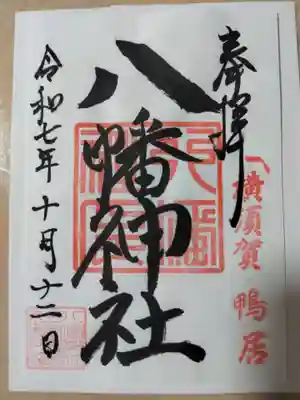 奉拝
横須賀 鴨居
八幡神社
令和七年十月十二日